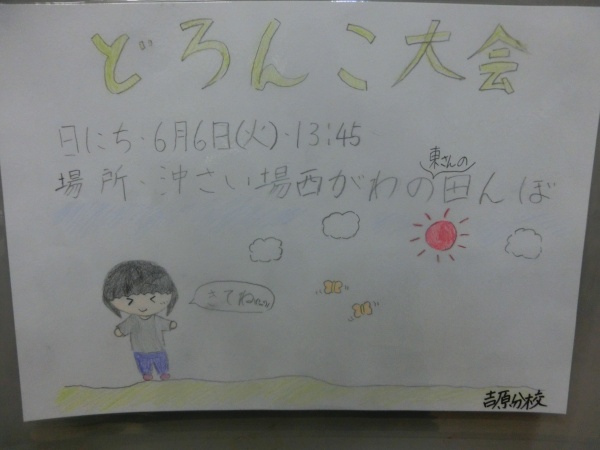 どろんこ大会
日にち・6月6日(火)・13:45
場所・沖さい場西がわの東さんの田んぼ
きてね
吉原分校